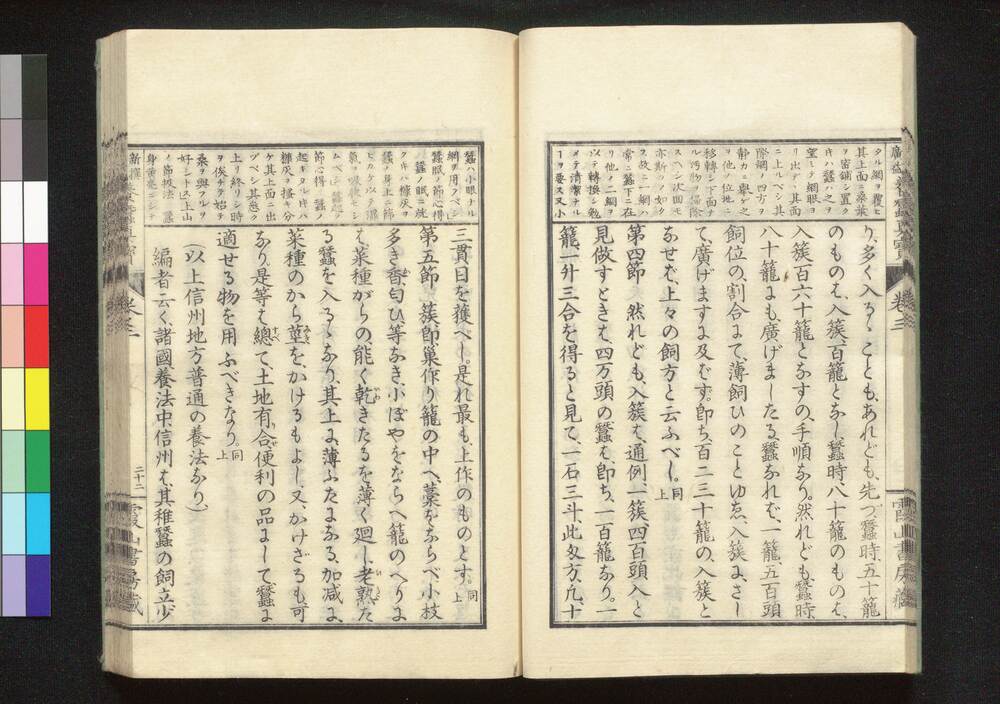 タル網ヲ覆ヒ
其上面ニ桑葉
ヲ密鋪シ置ク
キハ蚕ハ之ヲ
望ミテ網眼ヨ
リ出テ其面
ニ上ルベシ其
際網ノ四方ヲ
静カニ擧ゲ之
ヲ他ノ位地ニ
移轉シ下面ナ
ル汚物ヲ掃除
スベシ次回モ
亦斯ノ如ク
ス故ニ一網ハ
常ニ蚕下ニ在
リ他ノ一網ヲ
以テ轉換シ勉
メテ清潔ナル
ーヲ要ス又小
り、多く入るゝことも、あれども、先づ、蠶時、五十籠
のものは、入簇、百籠となし、蠶時、八十籠のものは、
入簇百六十籠となすの、手順なり。然れども、蠶時、
八十籠にも、廣げましたる、蠶なれば、一籠、五百頭
飼位の、割合にて、薄飼ひのことゆゑ、入簇に、さし
て、廣げますに及ばず。即ち、百二三十籠の、入簇と
なせば、上々の飼方と云ふべし。同上
第四節　然れども、入簇は、通例、一簇、四百頭、入と
見做すときは、四万頭の蠶は、即ち、一百籠なり。一
籠、一升三合を得ると見て、一石三斗、此匁方、凡十
霞山書房藏
卷三
蠶ハ小眼ナル
網ヲ用フベシ
蠶眠ノ節心得
蠶ノ眠ニ就
クキハ糠灰ヲ
蠶ノ身上ニ篩
ヒカケ以テ濕
氣ヲ吸收セシ
ムベシ蠶起ノ
節心得　蠶ノ
起キタルキハ
糠灰ヲ掻キ分
ケ其上面ニ出
ヅベシ其悉ク
上リ終リシ時
ヲ俟チテ始テ
桑ヲ與フルヲ
好シトス上山
ノ節扱法　蠶
三貫目を獲べし。是れ最も、上作のものとす。同上
第五節　簇、即、巣作り籠の中へ、藁をならべ、小枝
多き、香、匂ひ等なき、小ぼやをならべ、籠のへりに
は、菜種がらの、能く乾きたるを薄く廻し、老熟た
る蠶を入るゝなり。其上に、薄ふたになる、加減に、
菜種のから莖を、かけるもよし、又、かけざるも可
なり。是等は、總て、土地有合、便利の品にして、蠶に
適せる物を用ふべきなり。同上
（以上信州地方普通の養法なり）
編者云く、諸國養法中、信州は、其稚蠶の飼立少
卷三
二十二
霞山書房藏